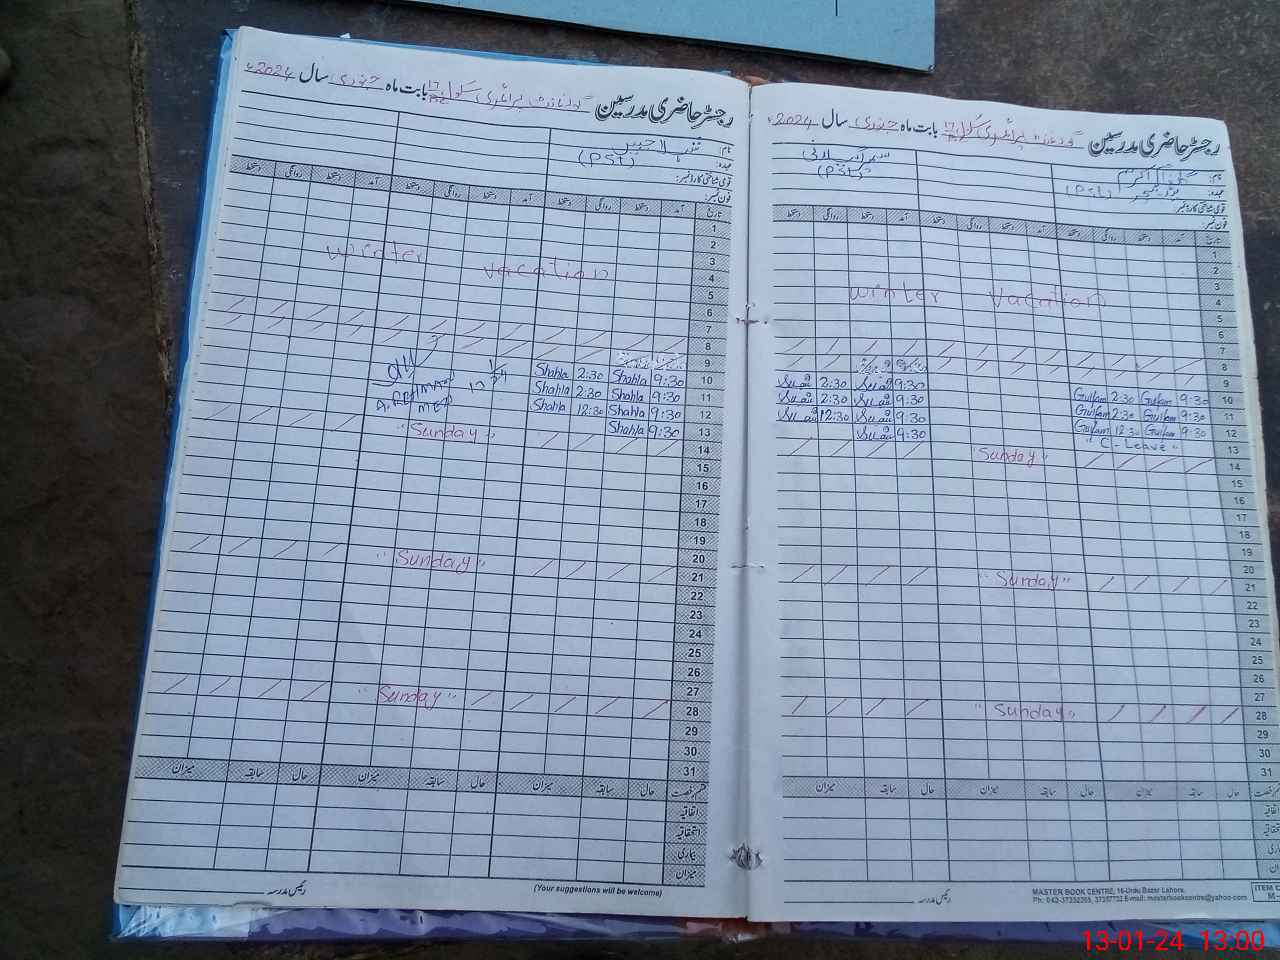 رجسٹر حاضری مدرسین گورنمنٹ پرائمری سکول بابت ماہ جنوری سال 2024ء
نام: شہلا جبیں
عہدہ: (PST)
قومی شناختی کارڈ نمبر:
فون نمبر:
تاریخ آمد دستخط روانگی دستخط آمد دستخط روانگی دستخط آمد دستخط روانگی دستخط
1
2
3
winter vacation
4
5
6
7
8
9
10 9:30 Shahla 2:30 Shahla
11 9:30 Shahla 2:30 Shahla
12 9:30 Shahla 12:30 Shahla
13 9:30 Shahla
A. REHMAN
14 "Sunday"
15
16
17
18
19
20
21 "Sunday"
22
23
24
25
26
27
28 "Sunday"
29
30
31
حال سابقہ میزان حال سابقہ میزان حال سابقہ میزان
اتفاقیہ
استحقاقیہ
بیماری
میزان
رئیس مدرسہ
(Your suggestions will be welcome)
رجسٹر حاضری مدرسین گورنمنٹ پرائمری سکول بابت ماہ جنوری سال 2024ء
نام:
عہدہ: (PST) (PST)
قومی شناختی کارڈ نمبر:
فون نمبر:
تاریخ آمد دستخط روانگی دستخط آمد دستخط روانگی دستخط آمد دستخط روانگی دستخط
1
2
3
winter vacation
4
5
6
7
8
9
10 9:30 Gulfam 2:30 Gulfam 9:30 2:30
11 9:30 Gulfam 2:30 Gulfam 9:30 2:30
12 9:30 Gulfam 12:30 Gulfam 9:30 12:30
13 "C-Leave" 9:30
14 "Sunday"
15
16
17
18
19
20
21 "Sunday"
22
23
24
25
26
27
28 "Sunday"
29
30
31
قسم رخصت حال سابقہ میزان حال سابقہ میزان حال سابقہ میزان
اتفاقیہ
استحقاقیہ
بیماری
رئیس مدرسہ
MASTER BOOK CENTRE, 16-Urdu Bazar Lahore.
Ph: 042-37232353, 37357732 E-mail: masterbookcentre@yahoo.com
13-01-24 13:00